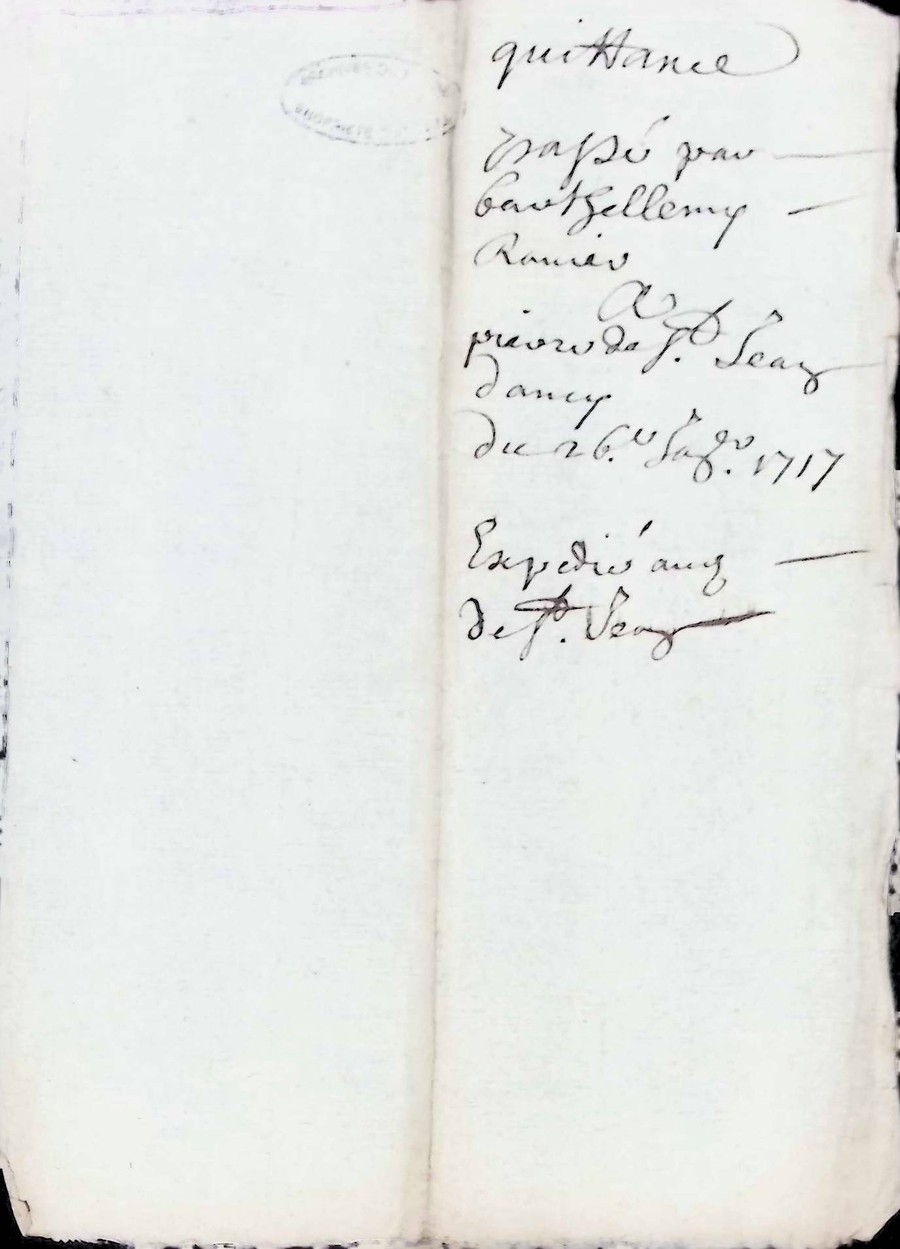 quittance
passé par
barthellemy
Ranier
A
pierre de St. Jean
dancy
du 26.e 1717
Expedié aud
de St. Jean